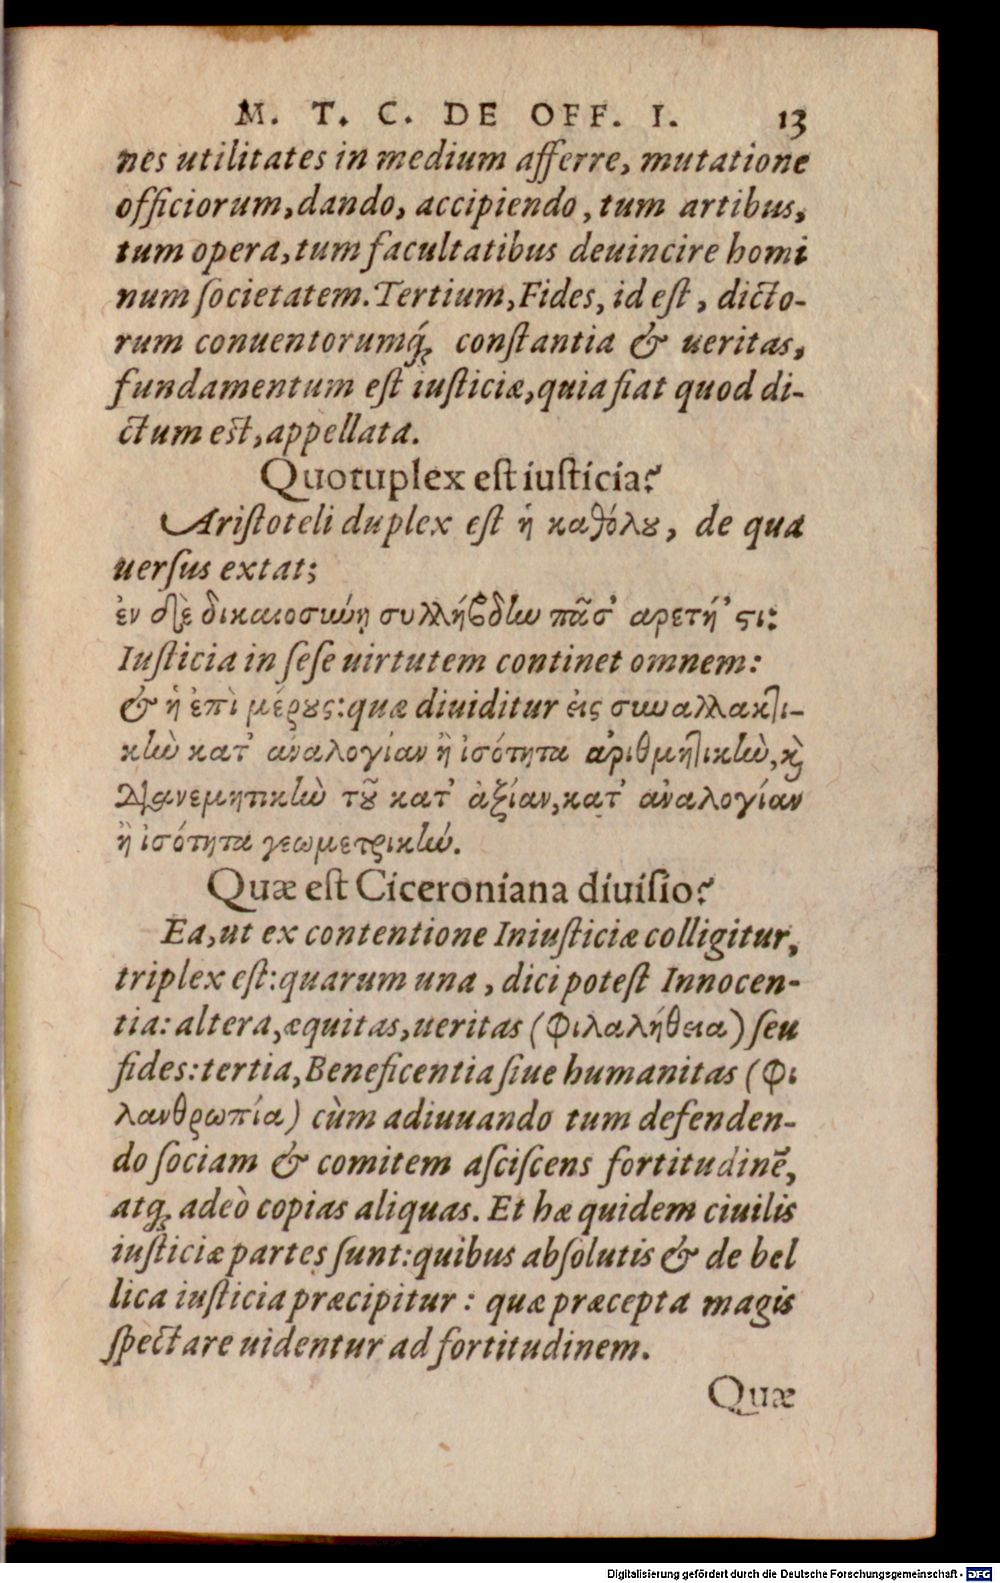 M. T. C. DE OFF. I. 13
nes utilitates in medium afferre, mutatione
officiorum, dando, accipiendo, tum artibus,
tum opera, tum facultatibus deuincire homi
num societatem. Tertium, Fides, id est, dicto-
rum conuentorumq́ꝫ constantia & ueritas,
fundamentum est iusticiæ, quia fiat quod di-
ctum est, appellata.
Quotuplex est iusticia?
Aristoteli duplex est ἡ καθόλου, de qua
uersus extat;
ἐν δὲ δικαιοσύνῃ συλλήβδην πᾶσ' αρετή' ςι:
Iusticia in sese uirtutem continet omnem:
& ἡ ἐπὶ μέρους: quæ diuiditur εἰς συναλλακτι-
κὴν κατ' αναλογίαν ἢ ἰσότητα ἀριθμητικὴν, καὶ
διανεμητικὴν τοῦ κατ' ἀξίαν, κατ' ἀναλογίαν
ἢ ἰσότητα γεωμετρικήν.
Quæ est Ciceroniana diuisio?
Ea, ut ex contentione Iniusticiæ colligitur,
triplex est: quarum una, dici potest Innocen-
tia: altera, æquitas, ueritas (Φιλαλήθεια) seu
fides: tertia, Beneficentia siue humanitas (Φι
λανθρωπία) cùm adiuuando tum defenden-
do sociam & comitem asciscens fortitudinẽ,
atqꝫ adeò copias aliquas. Et hæ quidem ciuilis
iusticiæ partes sunt: quibus absolutis & de bel
lica iusticia præcipitur: quæ præcepta magis
spectare uidentur ad fortitudinem.
Quæ
Digitalisierung gefördert durch die Deutsche Forschungsgemeinschaft - DFG